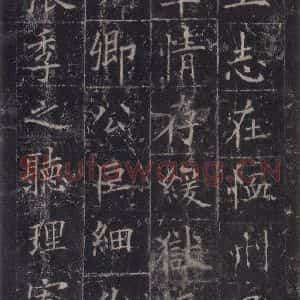 志在恤刑
情存緩獄
卿公臣細
張季之聽理
Shufawang.CN